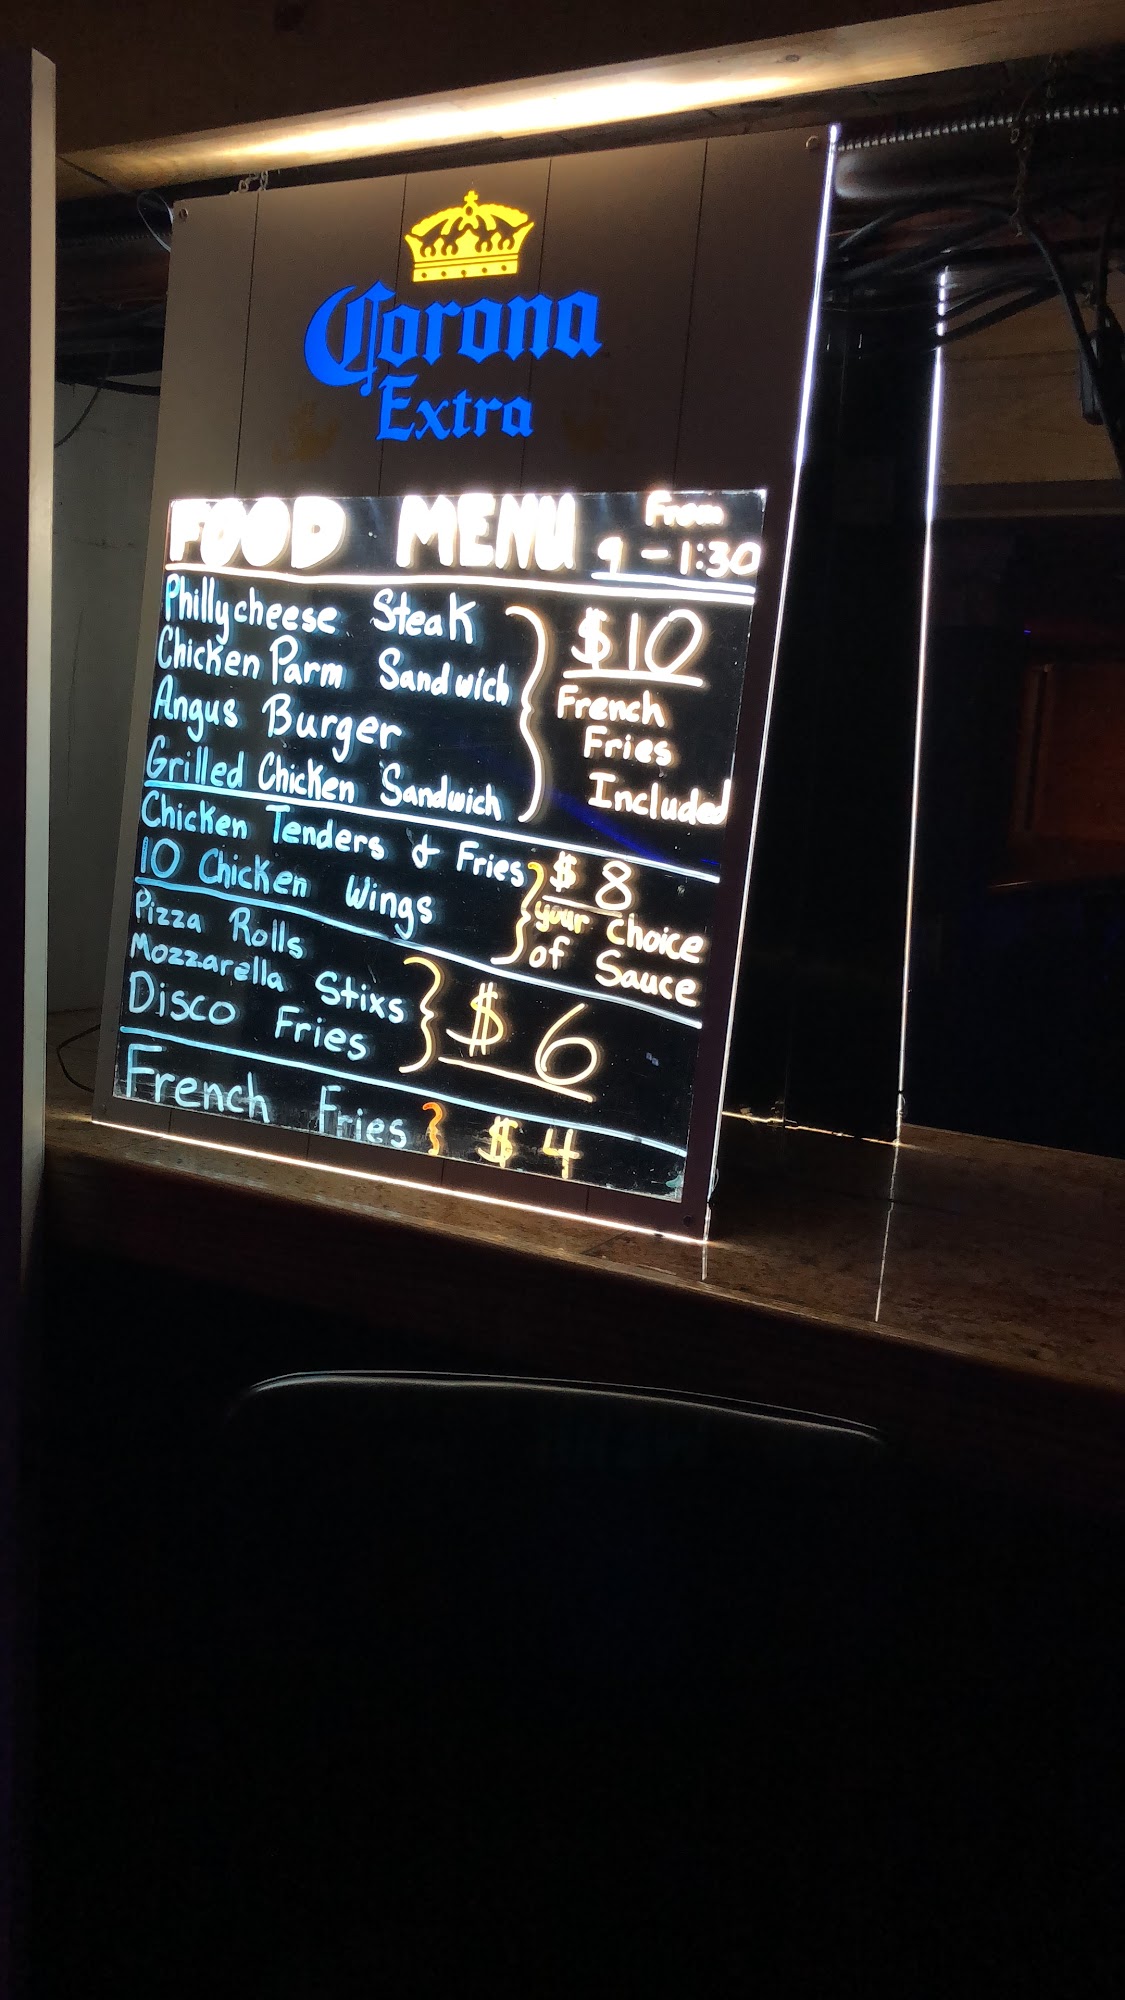 Corona
Extra
FOOD MENU
From
9 - 1:30
Phillycheese Steak
Chicken Parm Sandwich
Angus Burger
Grilled Chicken Sandwich
$10
French
Fries
Included
Chicken Tenders & Fries
10 Chicken Wings
$8
your choice
of Sauce
Pizza Rolls
Mozzarella Stixs
Disco Fries
$6
French Fries
$4